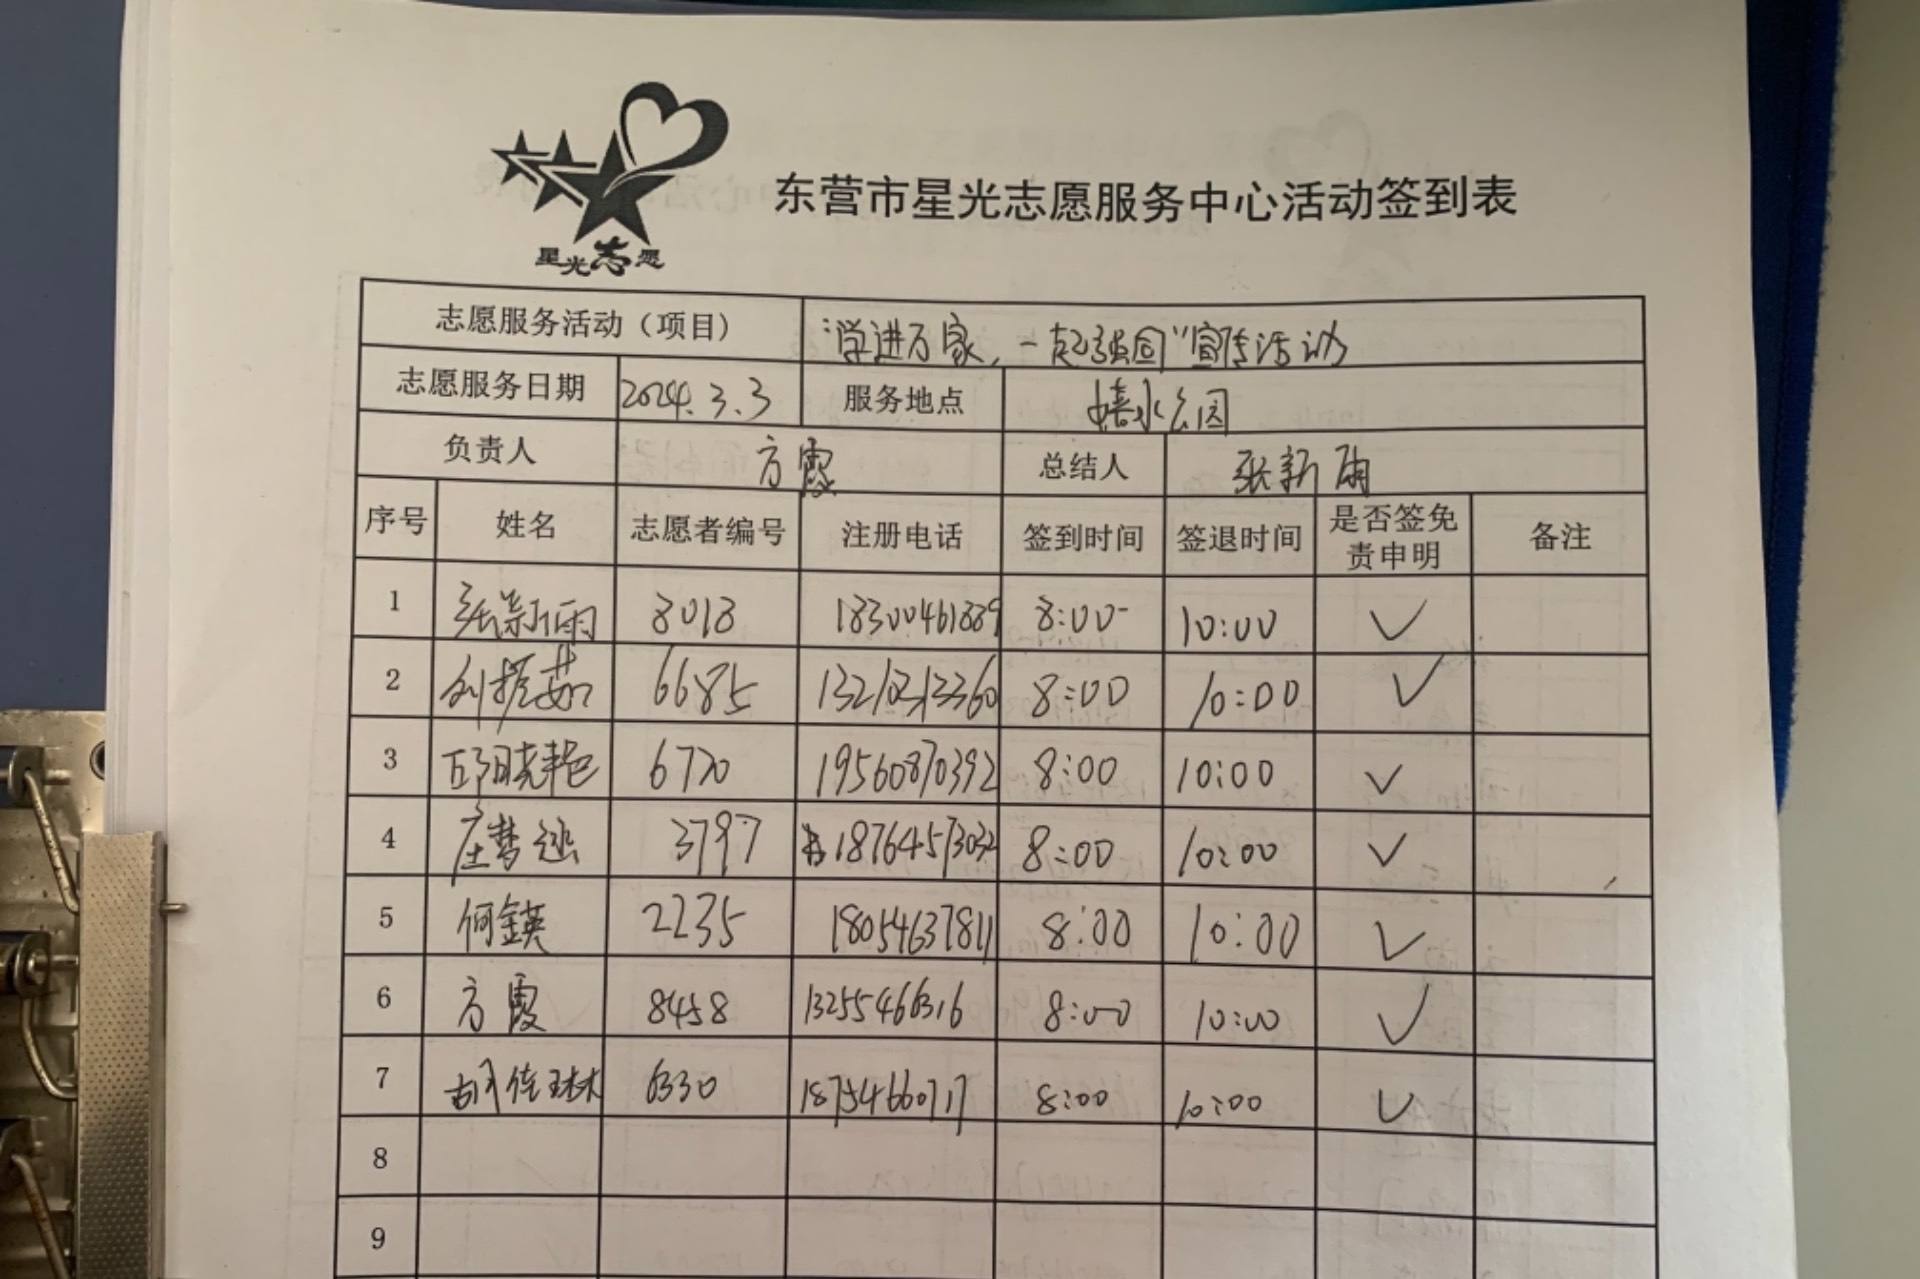 星光志愿
东营市星光志愿服务中心活动签到表
志愿服务活动（项目） “学进万家，一起强国”宣传活动
志愿服务日期 2024.3.3 服务地点 清水公园
负责人 方霞 总结人 张新雨
序号 姓名 志愿者编号 注册电话 签到时间 签退时间 是否签免责申明 备注
1 张新雨 8018 18300461889 8:00 10:00 ✓
2 刘振茹 6685 13210313360 8:00 10:00 ✓
3 邱晓艳 6770 19560870392 8:00 10:00 ✓
4 庄梦 3797 18764573032 8:00 10:00 ✓
5 何鍈 2235 18054637811 8:00 10:00 ✓
6 方霞 8458 13255466316 8:00 10:00 ✓
7 胡佳琳 6330 18754660717 8:00 10:00 ✓
8
9